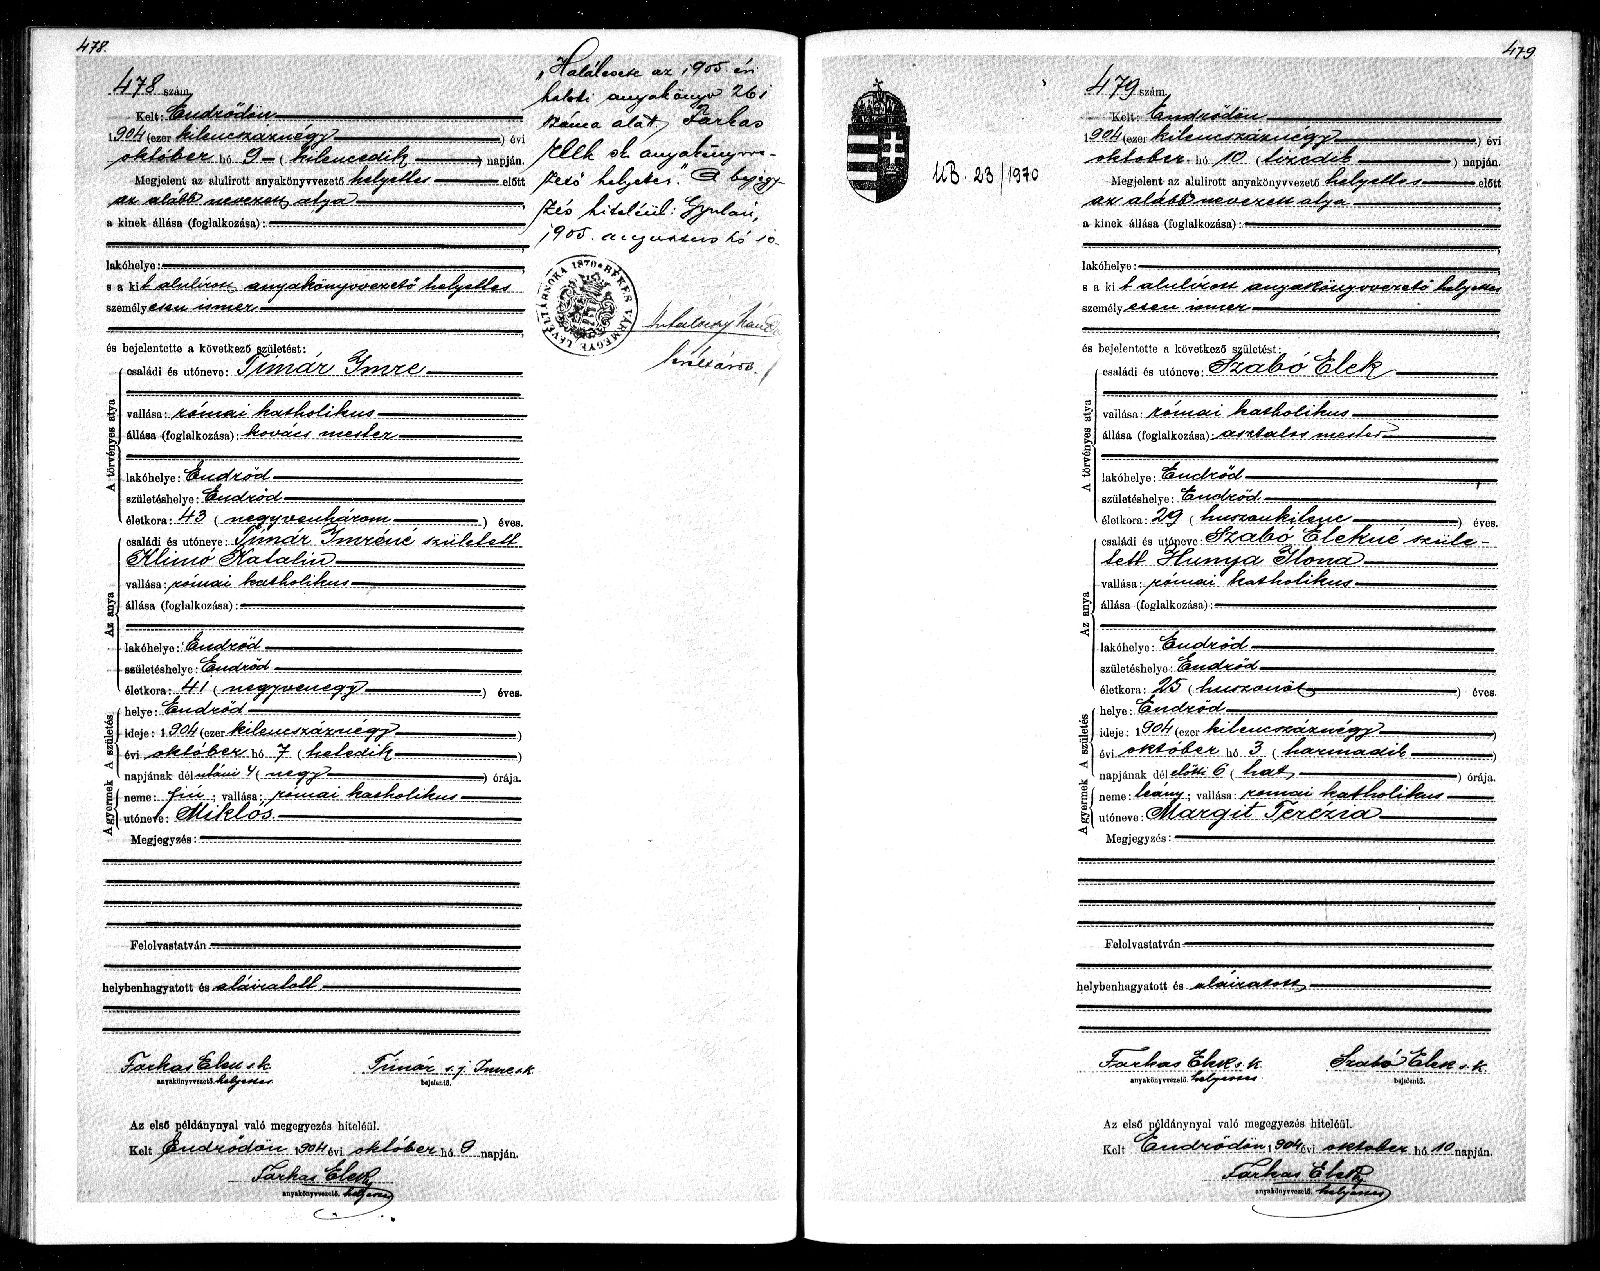 478.
478 szám.
Kelt: Endrődön
1904 (ezer kilencszáznégy) évi
október hó 9 (kilencedik) napján.
Megjelent az alulirott anyakönyvvezető helyettes előtt
az alább nevezett atya
a kinek állása (foglalkozása):
lakóhelye:
s a kit alulírott anyakönyvvezető helyettes
személyesen ismer
és bejelentette a következő születést:
A törvényes atya
családi és utóneve: Tímár Imre
vallása: római katholikus
állása (foglalkozása): kovács mester
lakóhelye: Endrőd
születéshelye: Endrőd
életkora: 43 (negyvenhárom) éves.
Az anya
családi és utóneve: Tímár Imréné született
Klimó Katalin
vallása: római katholikus
állása (foglalkozása):
lakóhelye: Endrőd
születéshelye: Endrőd
életkora: 41 (negyvenegy) éves.
A születés
helye: Endrőd
ideje: 1904 (ezer kilencszáznégy)
évi október hó 7 (hetedik)
napjának délutáni 4 (négy) órája.
A gyermek
neme: fiú; vallása: római katholikus
utóneve: Miklós
Megjegyzés:
Felolvastatván
helybenhagyatott és aláíratott
Farkas Elek sk
anyakönyvvezető. helyettes
Tímár s. j. Imre sk
bejelentő.
Az első példánynyal való megegyezés hiteléül.
Kelt Endrődön 1904 évi október hó 9 napján.
Farkas Elek
anyakönyvvezető. helyettes
"Halálesete az 1905 évi
haloti anyakönyv 261
száma alatt, Farkas
Elek sk anyakönyvve-
zető helyettes". A bejegy-
zés hiteléül: Gyulán,
1905. augusztus hó 10.
BÉKÉS VÁRMEGYE LEVÉLTÁRNOKA 1870
levéltárnok
479
479 szám.
MB. 23/1970
Kelt: Endrődön
1904 (ezer kilencszáznégy) évi
október hó 10 (tizedik) napján.
Megjelent az alulirott anyakönyvvezető helyettes előtt
az alább nevezett atya
a kinek állása (foglalkozása):
lakóhelye:
s a kit alulírott anyakönyvvezető helyettes
személyesen ismer
és bejelentette a következő születést:
A törvényes atya
családi és utóneve: Szabó Elek
vallása: római katholikus
állása (foglalkozása): asztalos mester
lakóhelye: Endrőd
születéshelye: Endrőd
életkora: 29 (huszonkilenc) éves.
Az anya
családi és utóneve: Szabó Elekné szüle-
tett Hunya Ilona
vallása: római katholikus
állása (foglalkozása):
lakóhelye: Endrőd
születéshelye: Endrőd
életkora: 25 (huszonöt) éves.
A születés
helye: Endrőd
ideje: 1904 (ezer kilencszáznégy)
évi október hó 3 (harmadik)
napjának délelőtti 6 (hat) órája.
A gyermek
neme: leány; vallása: római katholikus
utóneve: Margit Terézia
Megjegyzés:
Felolvastatván
helybenhagyatott és aláíratott
Farkas Elek s. k.
anyakönyvvezető. helyettes
Szabó Elek s k
bejelentő.
Az első példánynyal való megegyezés hiteléül.
Kelt Endrődön 1904 évi október hó 10 napján.
Farkas Elek
anyakönyvvezető. helyettes